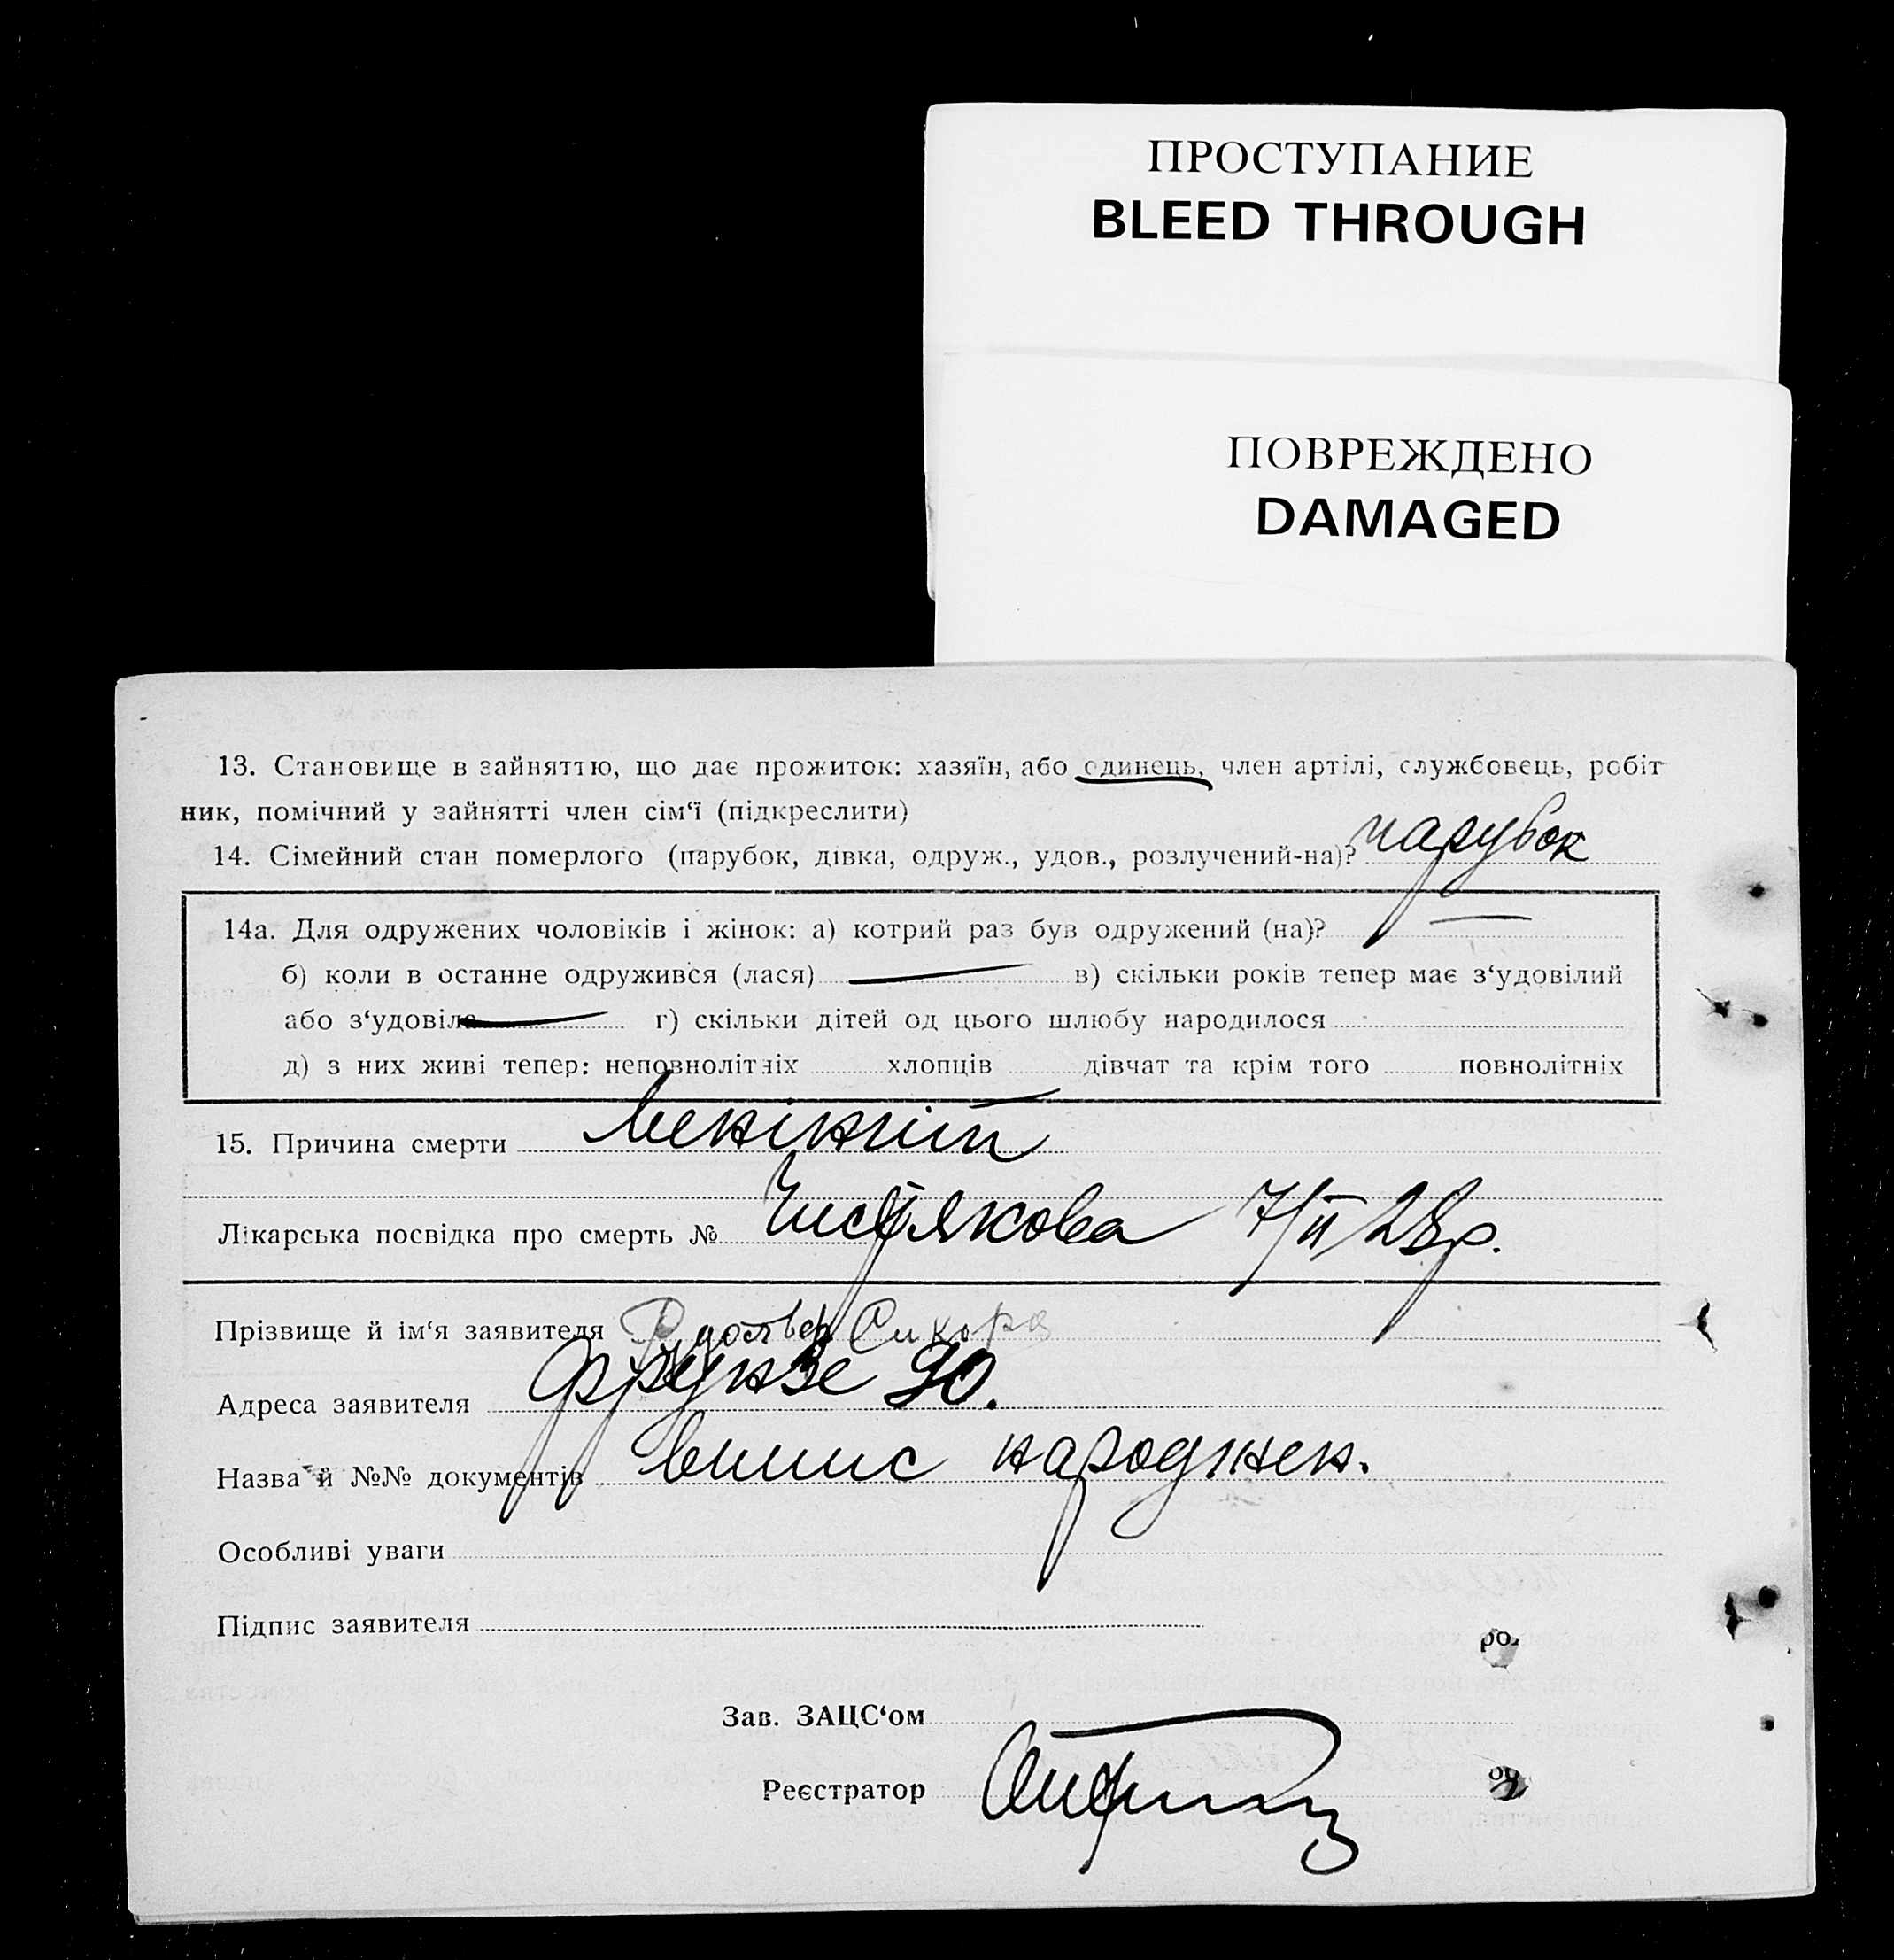 ПРОСТУПАНИЕ
BLEED THROUGH
ПОВРЕЖДЕНО
DAMAGED
13. Становище в зайняттю, що дає прожиток: хазяїн, або одинець, член артілі, службовець, робіт
ник, помічний у зайнятті член сім‘ї (підкреслити)
14. Сімейний стан померлого (парубок, дівка, одруж., удов., розлучений-на)? парубок
14а. Для одружених чоловіків і жінок: а) котрий раз був одружений (на)? —
б) коли в останне одружився (лася) — в) скільки років тепер має з‘удовілий
або з‘удовіла — г) скільки дітей од цього шлюбу народилося
д) з них живі тепер: неповнолітніх хлопців дівчат та крім того повнолітніх
15. Причина смерти менінгіт
Лікарська посвідка про смерть № Чистякова 7/II 28р.
Прізвище й ім‘я заявителя Рудольф Сикора
Адреса заявителя Фрунзе 90.
Назва й №№ документів випис народжен.
Особливі уваги
Підпис заявителя
Зав. ЗАЦС‘ом
Реєстратор